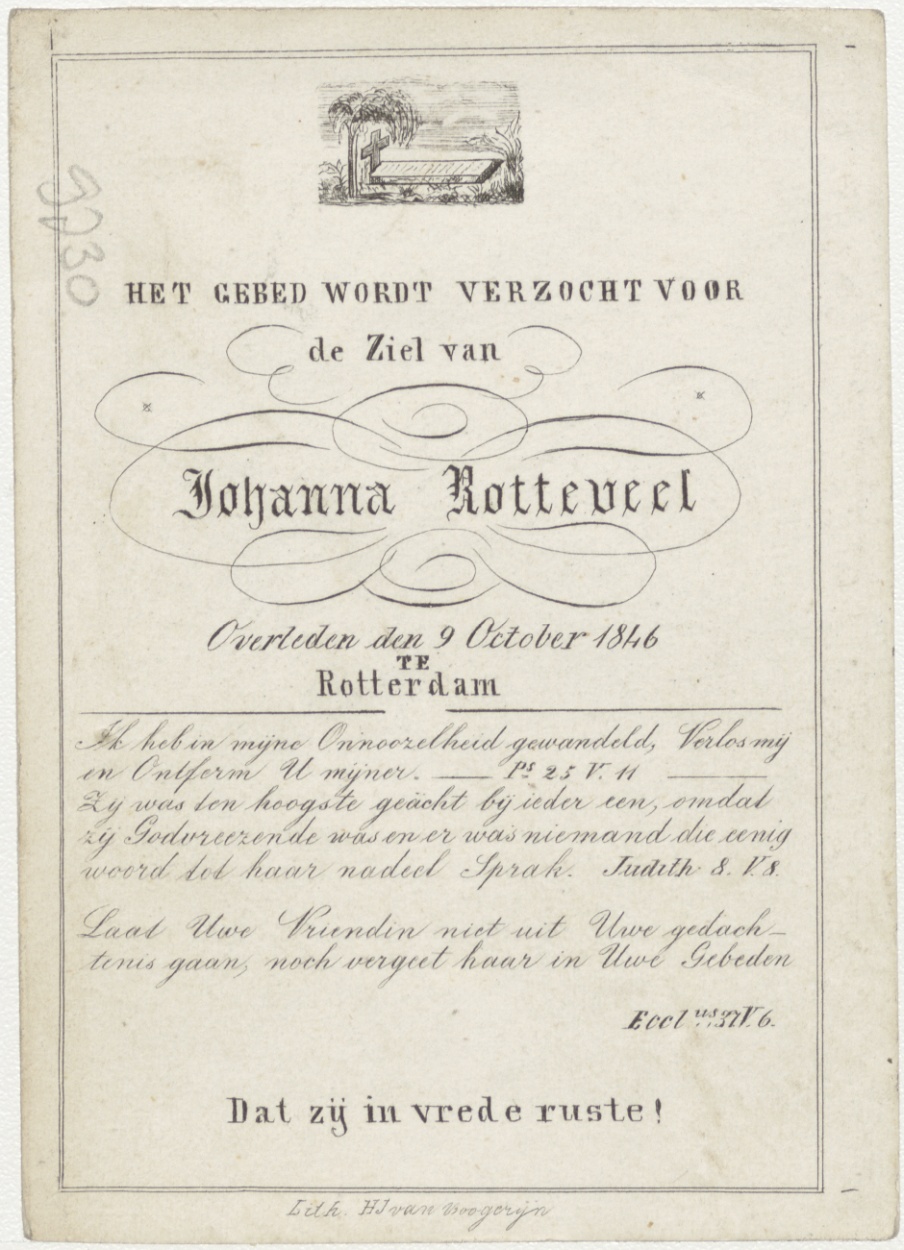 HET GEBED WORDT VERZOCHT VOOR
de Ziel van
Johanna Rotteveel
Overleden den 9 October 1846
TE
Rotterdam
Ik heb in mijne Onnoozelheid gewandeld, Verlos mij
en Ontferm U mijner. — Ps 25 V. 11 —
Zij was ten hoogste geächt bij ieder een, omdat
zij Godvreezende was en er was niemand die eenig
woord tot haar nadeel Sprak. Judith 8. V. 8.
Laat Uwe Vriendin niet uit Uwe gedach-
tenis gaan, noch vergeet haar in Uwe Gebeden
Eccl us 37 V. 6.
Dat zij in vrede ruste!
Lith. HJ van
9930